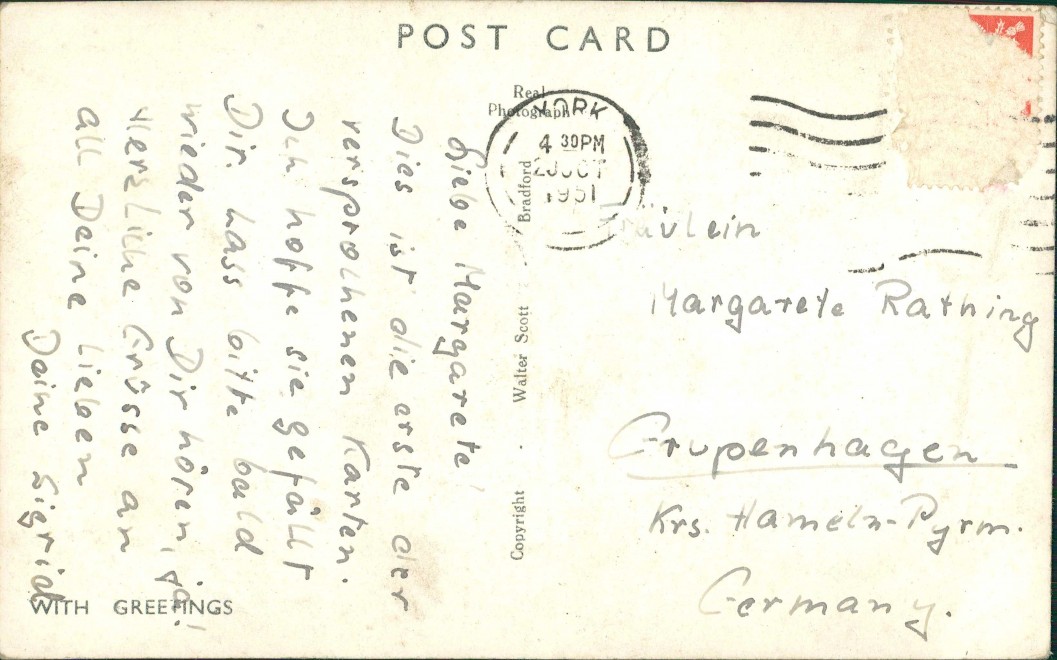 POST CARD
Real
Photograph
YORK
4 30PM
OCT
1951
Liebe Margarete
Dies ist die erste der
versprochenen Karten.
Ich hoffe sie gefällt
Dir. Lass bitte bald
wieder von Dir hören, ja!
Herzliche Grüsse an
all Deine Lieben
Deine Sigrid
WITH GREETINGS
Copyright · Walter Scott · Bradford
Fräulein
Margarete Rathing
Grupenhagen
Krs. Hameln-Pyrm.
Germany.